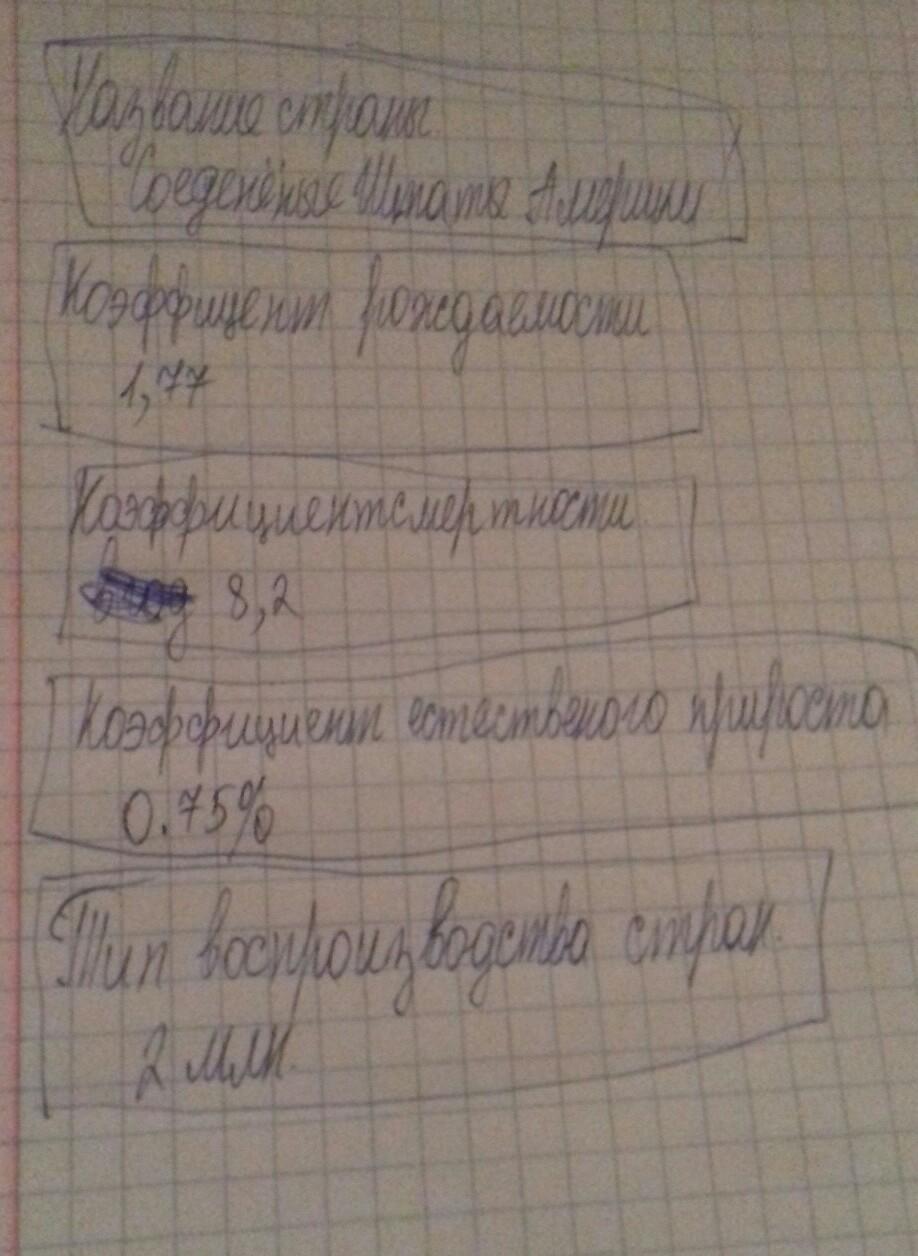 Название страны
Соеденёные Штаты Америки
Коэффицент рождаемости
1,77
Коэффициент смертности
8,2
Коэффициент естественого прироста
0.75%
Тип воспроизводства стран.
2 млн.